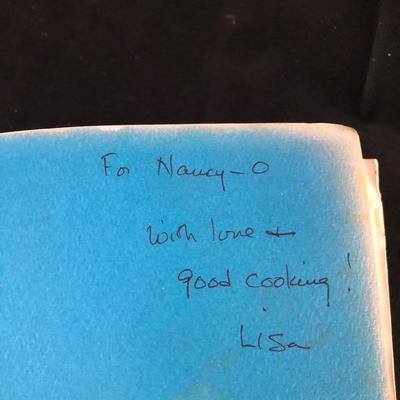 For Nancy-O
with love +
good cooking!
Lisa